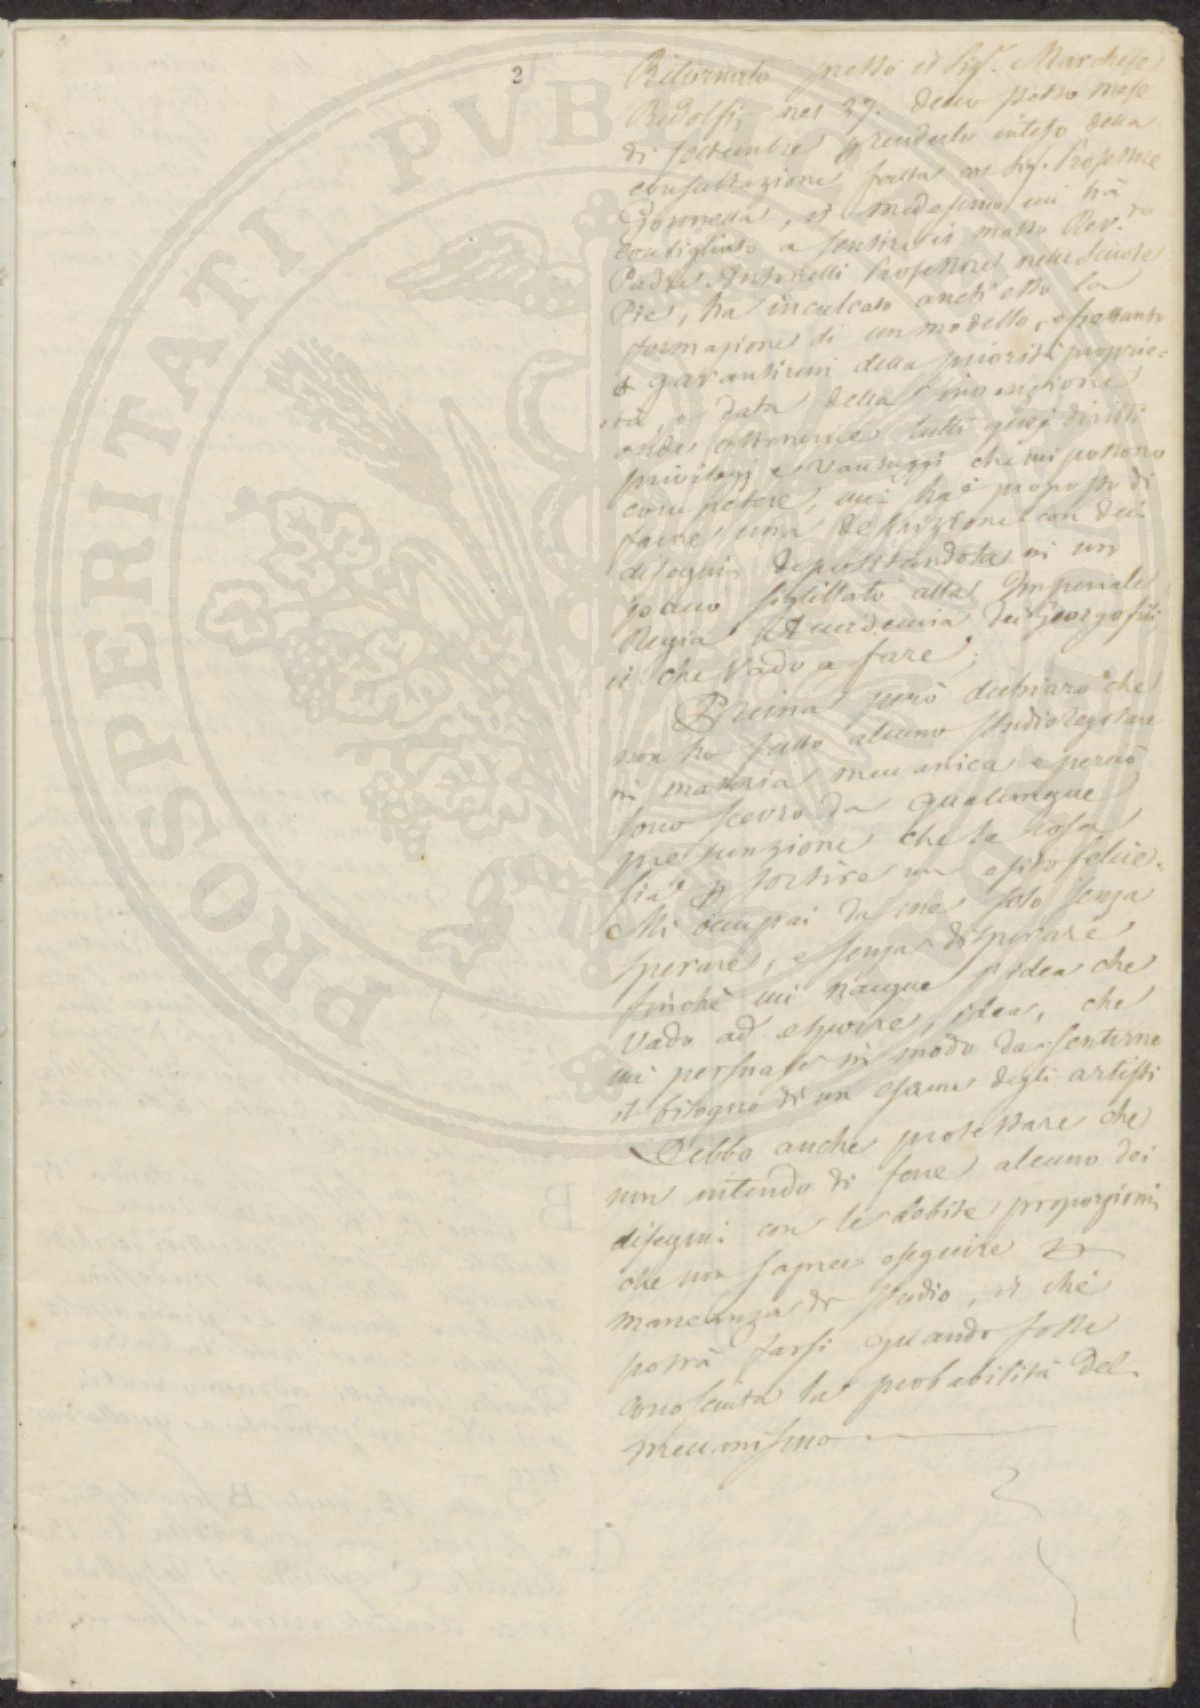 2
Ritornato presso il Sig.r Marchese
Ridolfi, nel 27. detto passo mese
di Settembre prenderlo inteso della
consultazione fatta col Sig. Professore
Gonnella, il medesimo mi hà
consigliato a sentire il molto Rev.do
Padre Antonelli Professore nelle Scuole
Pie, ha inculcato anch'esso la
formazione di un modello, e frattanto
a garantirmi della priorità proprie=
tà, e data della invenzione
onde ottenerne tutti quei diritti
privilegj e vantaggi che mi possono
competere, mi ha proposto di
farne una descrizione con dei
disegni depositandola in un
pacco sigillato alla Imperiale
Regia Accademia dei Georgofili
il che vado a fare;
Prima però dichiaro che
non ho fatto alcuno studio regolare
in materia meccanica e perciò
sono scevro da qualunque
presunzione che la cosa
sia p sortire un esito felice.
Mi occupai da me solo senza
sperare, e senza disperare
finchè mi nacque l'idea che
vado ad esporre, idea, che
mi persuase in modo da sentirne
il bisogno di un esame degli artisti
Debbo anche protestare che
non intendo di fare alcuno dei
disegni con le debite proporzioni,
che non saprei eseguire p
mancanza di studio, il che
potrà farsi quando fosse
conosciuta la probabilità del
meccanismo
PROSPERITATI PUBLICAE